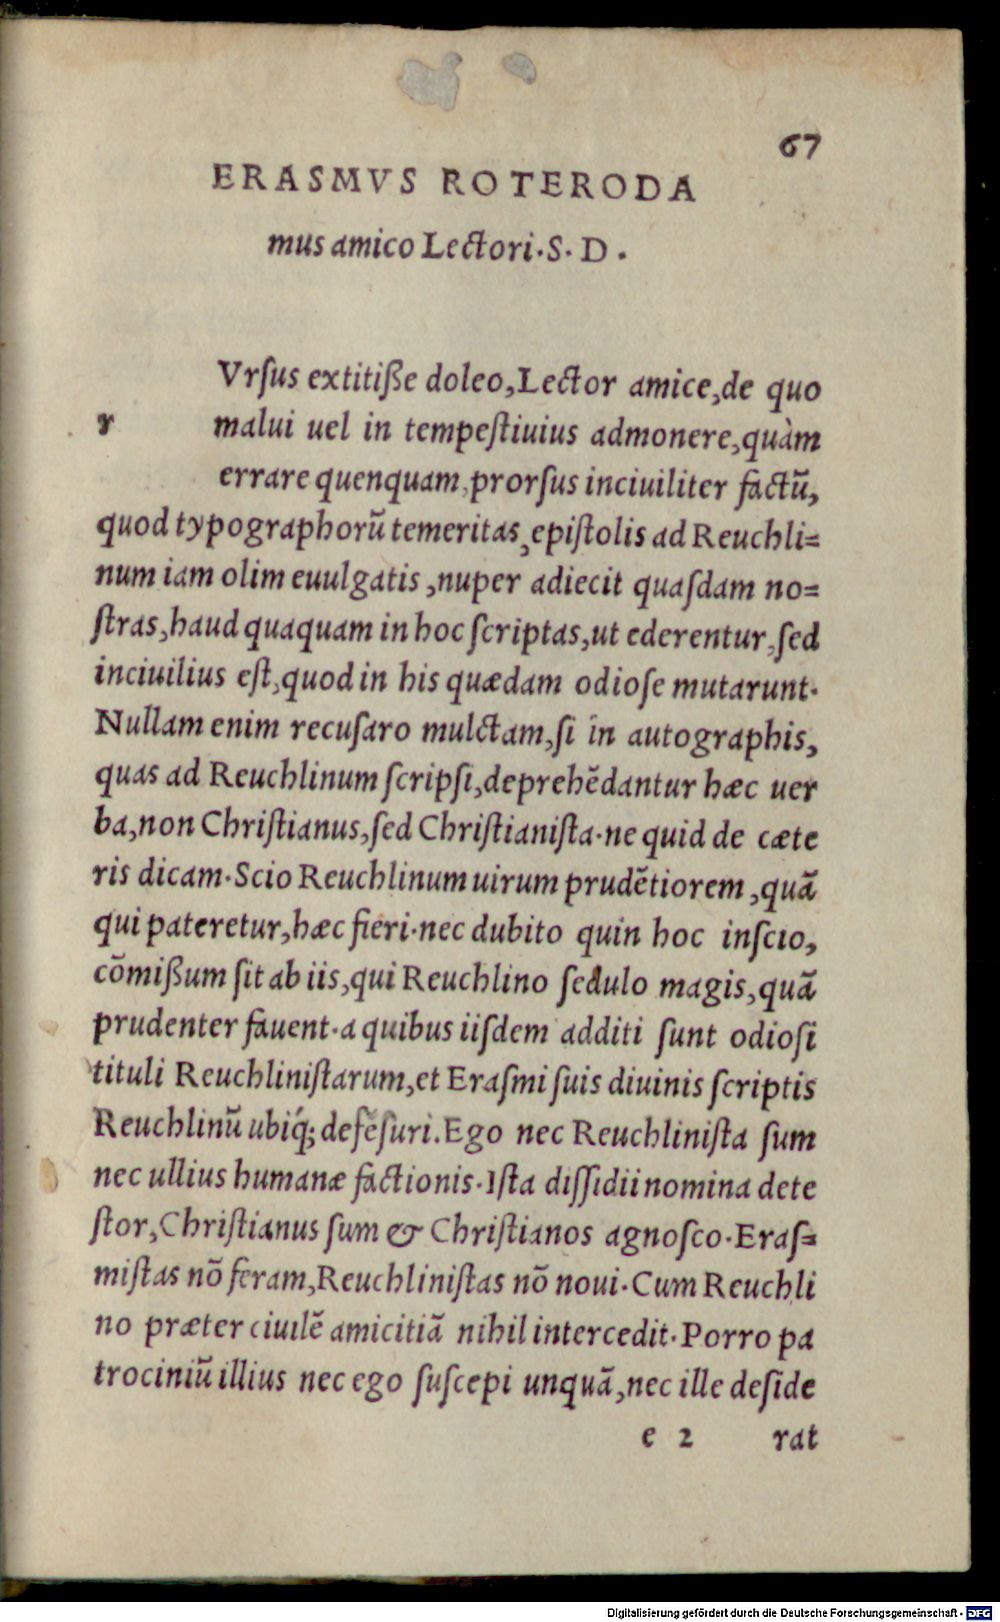 67
ERASMVS ROTERODA
mus amico Lectori. S. D.
Vrſus extitiße doleo, Lector amice, de quo
r malui uel in tempeſtiuius admonere, quàm
errare quenquam, prorſus inciuiliter factū,
quod typographorū temeritas, epiſtolis ad Reuchli=
num iam olim euulgatis, nuper adiecit quaſdam no=
ſtras, haud quaquam in hoc ſcriptas, ut ederentur, ſed
inciuilius eſt, quod in his quædam odioſe mutarunt.
Nullam enim recuſaro mulctam, ſi in autographis,
quas ad Reuchlinum ſcripſi, deprehēdantur hæc uer
ba, non Chriſtianus, ſed Chriſtianiſta. ne quid de cæte
ris dicam. Scio Reuchlinum uirum prudētiorem, quã
qui pateretur, hæc fieri. nec dubito quin hoc inſcio,
cōmißum ſit ab iis, qui Reuchlino ſedulo magis, quã
prudenter fauent. a quibus iiſdem additi ſunt odioſi
tituli Reuchliniſtarum, et Eraſmi ſuis diuinis ſcriptis
Reuchlinū ubiq́; defēſuri. Ego nec Reuchliniſta ſum
nec ullius humanæ factionis. Iſta diſſidii nomina dete
ſtor, Chriſtianus ſum & Chriſtianos agnoſco. Eraſ=
miſtas nō feram, Reuchliniſtas nō noui. Cum Reuchli
no præter ciuilē amicitiã nihil intercedit. Porro pa
trociniū illius nec ego ſuſcepi unquã, nec ille deſide
e 2 rat
Digitalisierung gefördert durch die Deutsche Forschungsgemeinschaft - DFG